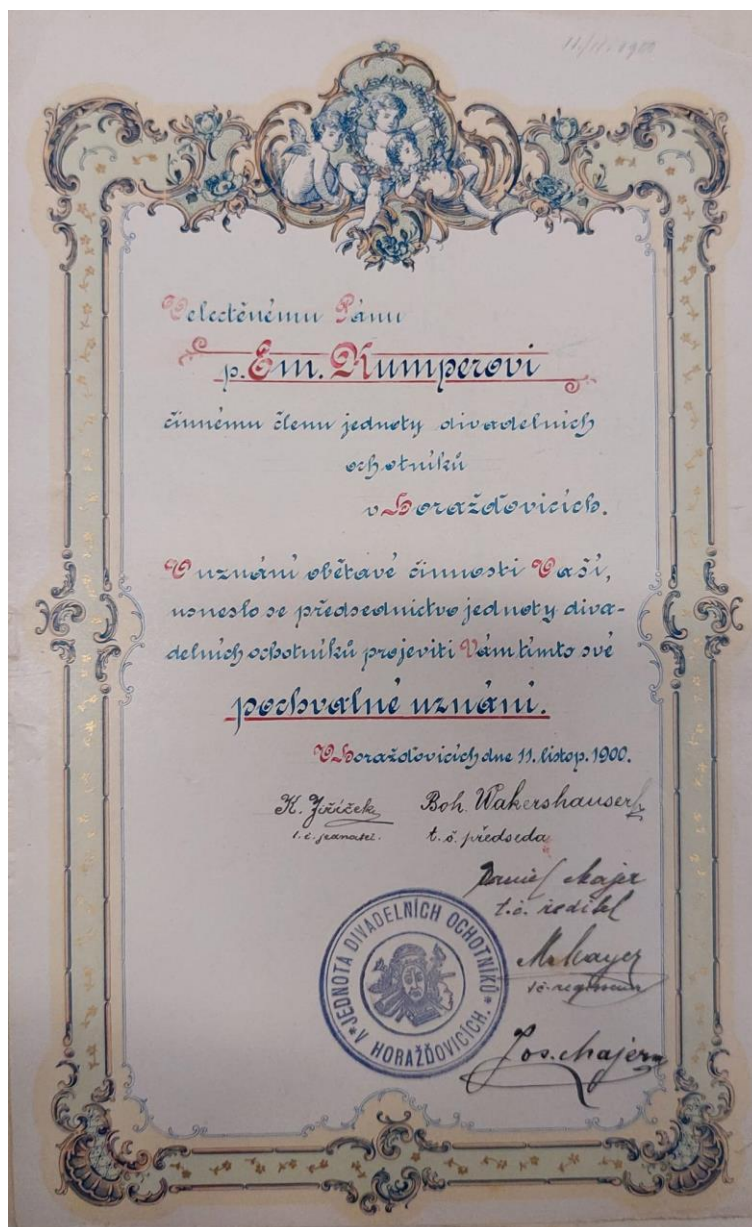 11/11. 1900
Velectěnému Pánu
p. Em. Kumperovi
činnému členu jednoty divadelních
ochotníků
v Horažďovicích.
V uznání obětavé činnosti Vaší,
usneslo se předsednictvo jednoty diva-
delních ochotníků projeviti Vám tímto své
pochvalné uznání.
V Horažďovicích dne 11. listop. 1900.
K. Jiříček
t. č. jednatel.
Boh. Wakershauser
t. č. předseda
Daniel Majer
t. č. ředitel
Mayer
Jos. Majer
JEDNOTA DIVADELNÍCH OCHOTNÍKŮ
V HORAŽĎOVICÍCH.